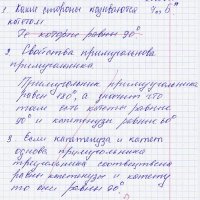 1. Какие стороны называются
катетом
Те которые равны 90°
2. Свойства прямоугольнова
прямоугольника
Прямоугольник прямоугольника
равен 180°, а значит что
там есть катеты равные
90° и каттетузы равные 60°
3. Если катетуза и катет
однова прямоугольника
треугольника соответственно
равно катетузы и катету
то они равны 90°